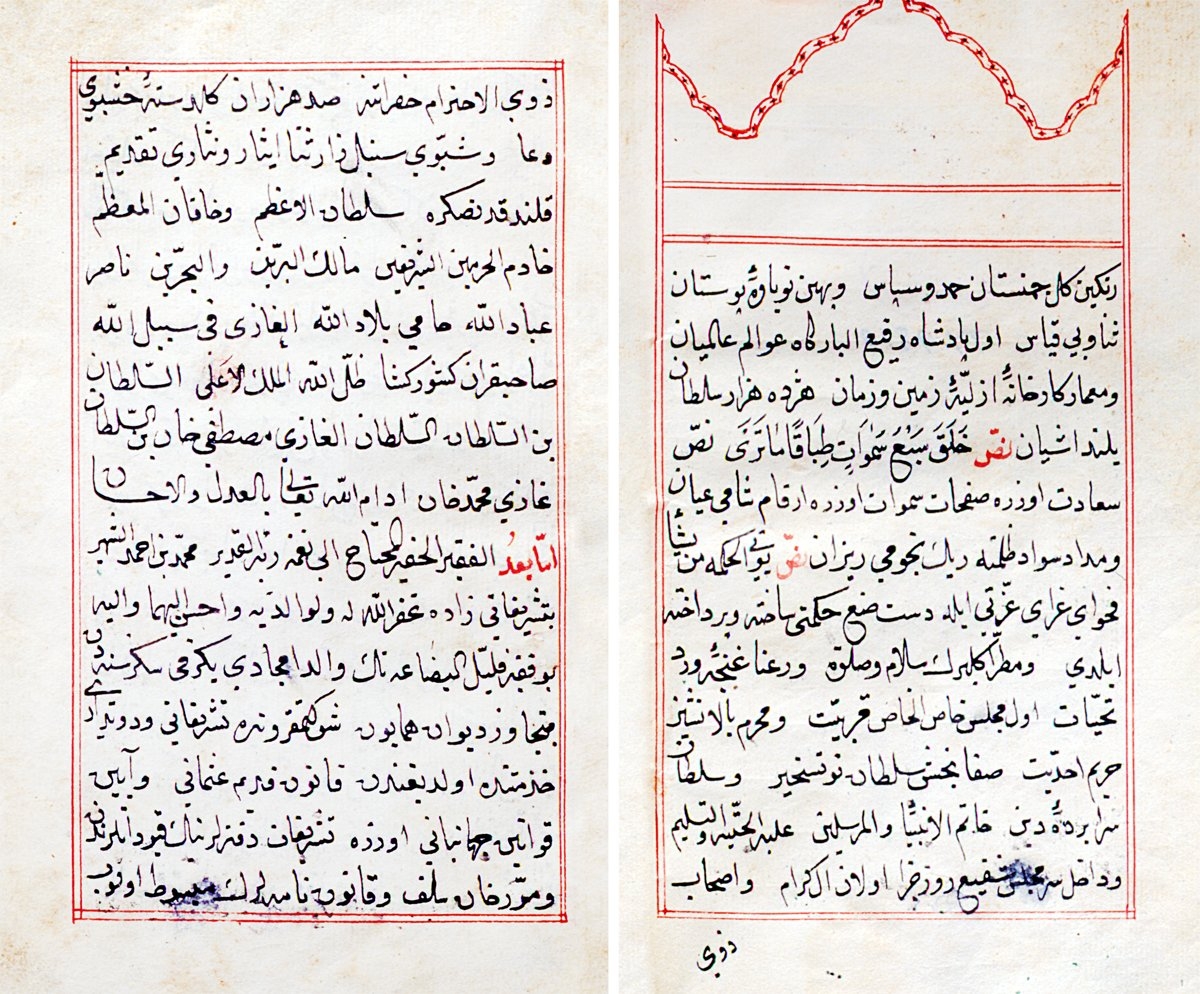 رنكين كل چمنستان حمد وسپاس وبهين نوباوهٔ بوستان
ثناوبي قياس اول پادشاه رفيع البارگاه عوالم عالميان
ومعمار كارخانهٔ ازليّهٔ زمين وزمان هژده هزار سلطان
بلند اشيان نصّ خَلَقَ سَبْعَ سَمٰوَاتٍ طِبَاقًا مَا تَرٰى نصّ
سعادت اوزره صفحات سموات اوزره ارقام شامي عيان
ومداد سواد ظلمته ريك نجومي ريزان نصّ يؤتي الحكمه من يشأ
فحواي غراي عزّتي ايله دست صنع حكمتى ساخته وپرداخته
ايلدي ومطرّا كلبرك سلام وصلوة ورعنا غنچهٔ ورد
تحيّات اول مجلس خاص الخاص قربيّت ومحرم بالانشين
حريم احديّت صفابخش سلطان نوتسخير وسلطان
سرابردهٔ دين خاتم الانبيّا والمرسلين عليه التحيّة والتسليم
وداخل مجلس شفيع روز جزا اولان ال كرام واصحاب
ذوي
ذوي الاحترام حضراتنه صد هزاران كلدستهٔ خشبوي
دعا وشبّوي سنبل زار ثنا ايثار ونثاري تقديم
قلندقدنصكره سلطان الاعظم وخاقان المعظم
خادم الحرمين الشريفين مالك البرّين والبحرّين ناصر
عباد الله حامي بلاد الله الغازى فى سبيل الله
صاحبقران كشور كشا ظلّ الله الملك الاعلى السّلطان
بن السّلطان السّلطان الغازي مصطفى خان بن السّلطان
غازي محمّد خان ادام الله تعالى بالعدل والاحسان
امّا بعدُ الفقير الحقير المحتاج الى نعمة ربّه القدير محمّد بن احمد الشهير
بتشريفاتي زاده غفر الله له ولوالديه واحسن اليهما واليه
بو فقير قليل البضاعه نك والد امجادي يكرمى سكز سنه دن
متجاوز ديوان همايون شوكتمقرونده تشريفاتي ودويدار
خذمتنده اولديغندن قانون قديم عثماني وآيين
قوانين جهانباني اوزره تشريفات دفترلرنك قيوداتلرندن
ومورّخان سلف وقانون نامه لرك مضبوط اولنوب